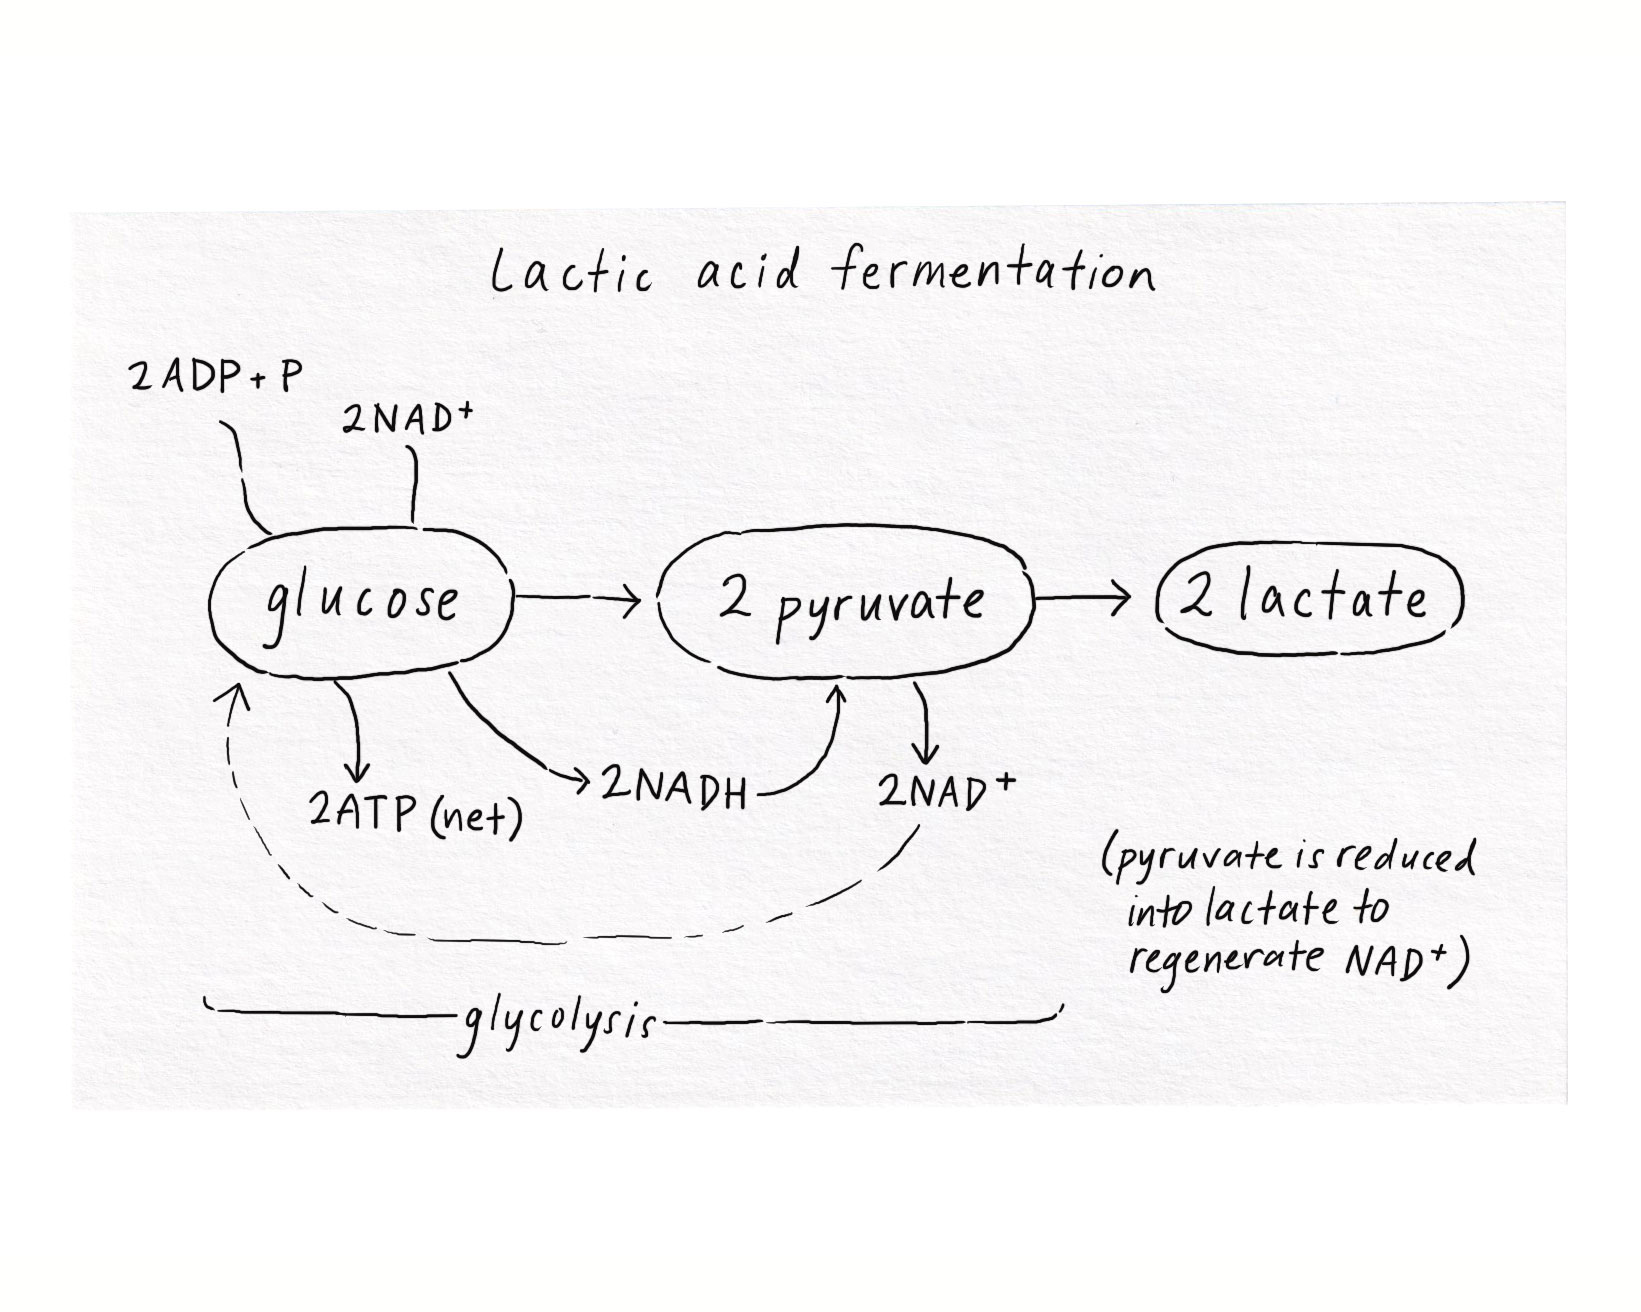 Lactic acid fermentation
2ADP + P
2NAD⁺
glucose
2 pyruvate
2 lactate
2ATP (net)
2NADH
2NAD⁺
(pyruvate is reduced
into lactate to
regenerate NAD⁺)
glycolysis